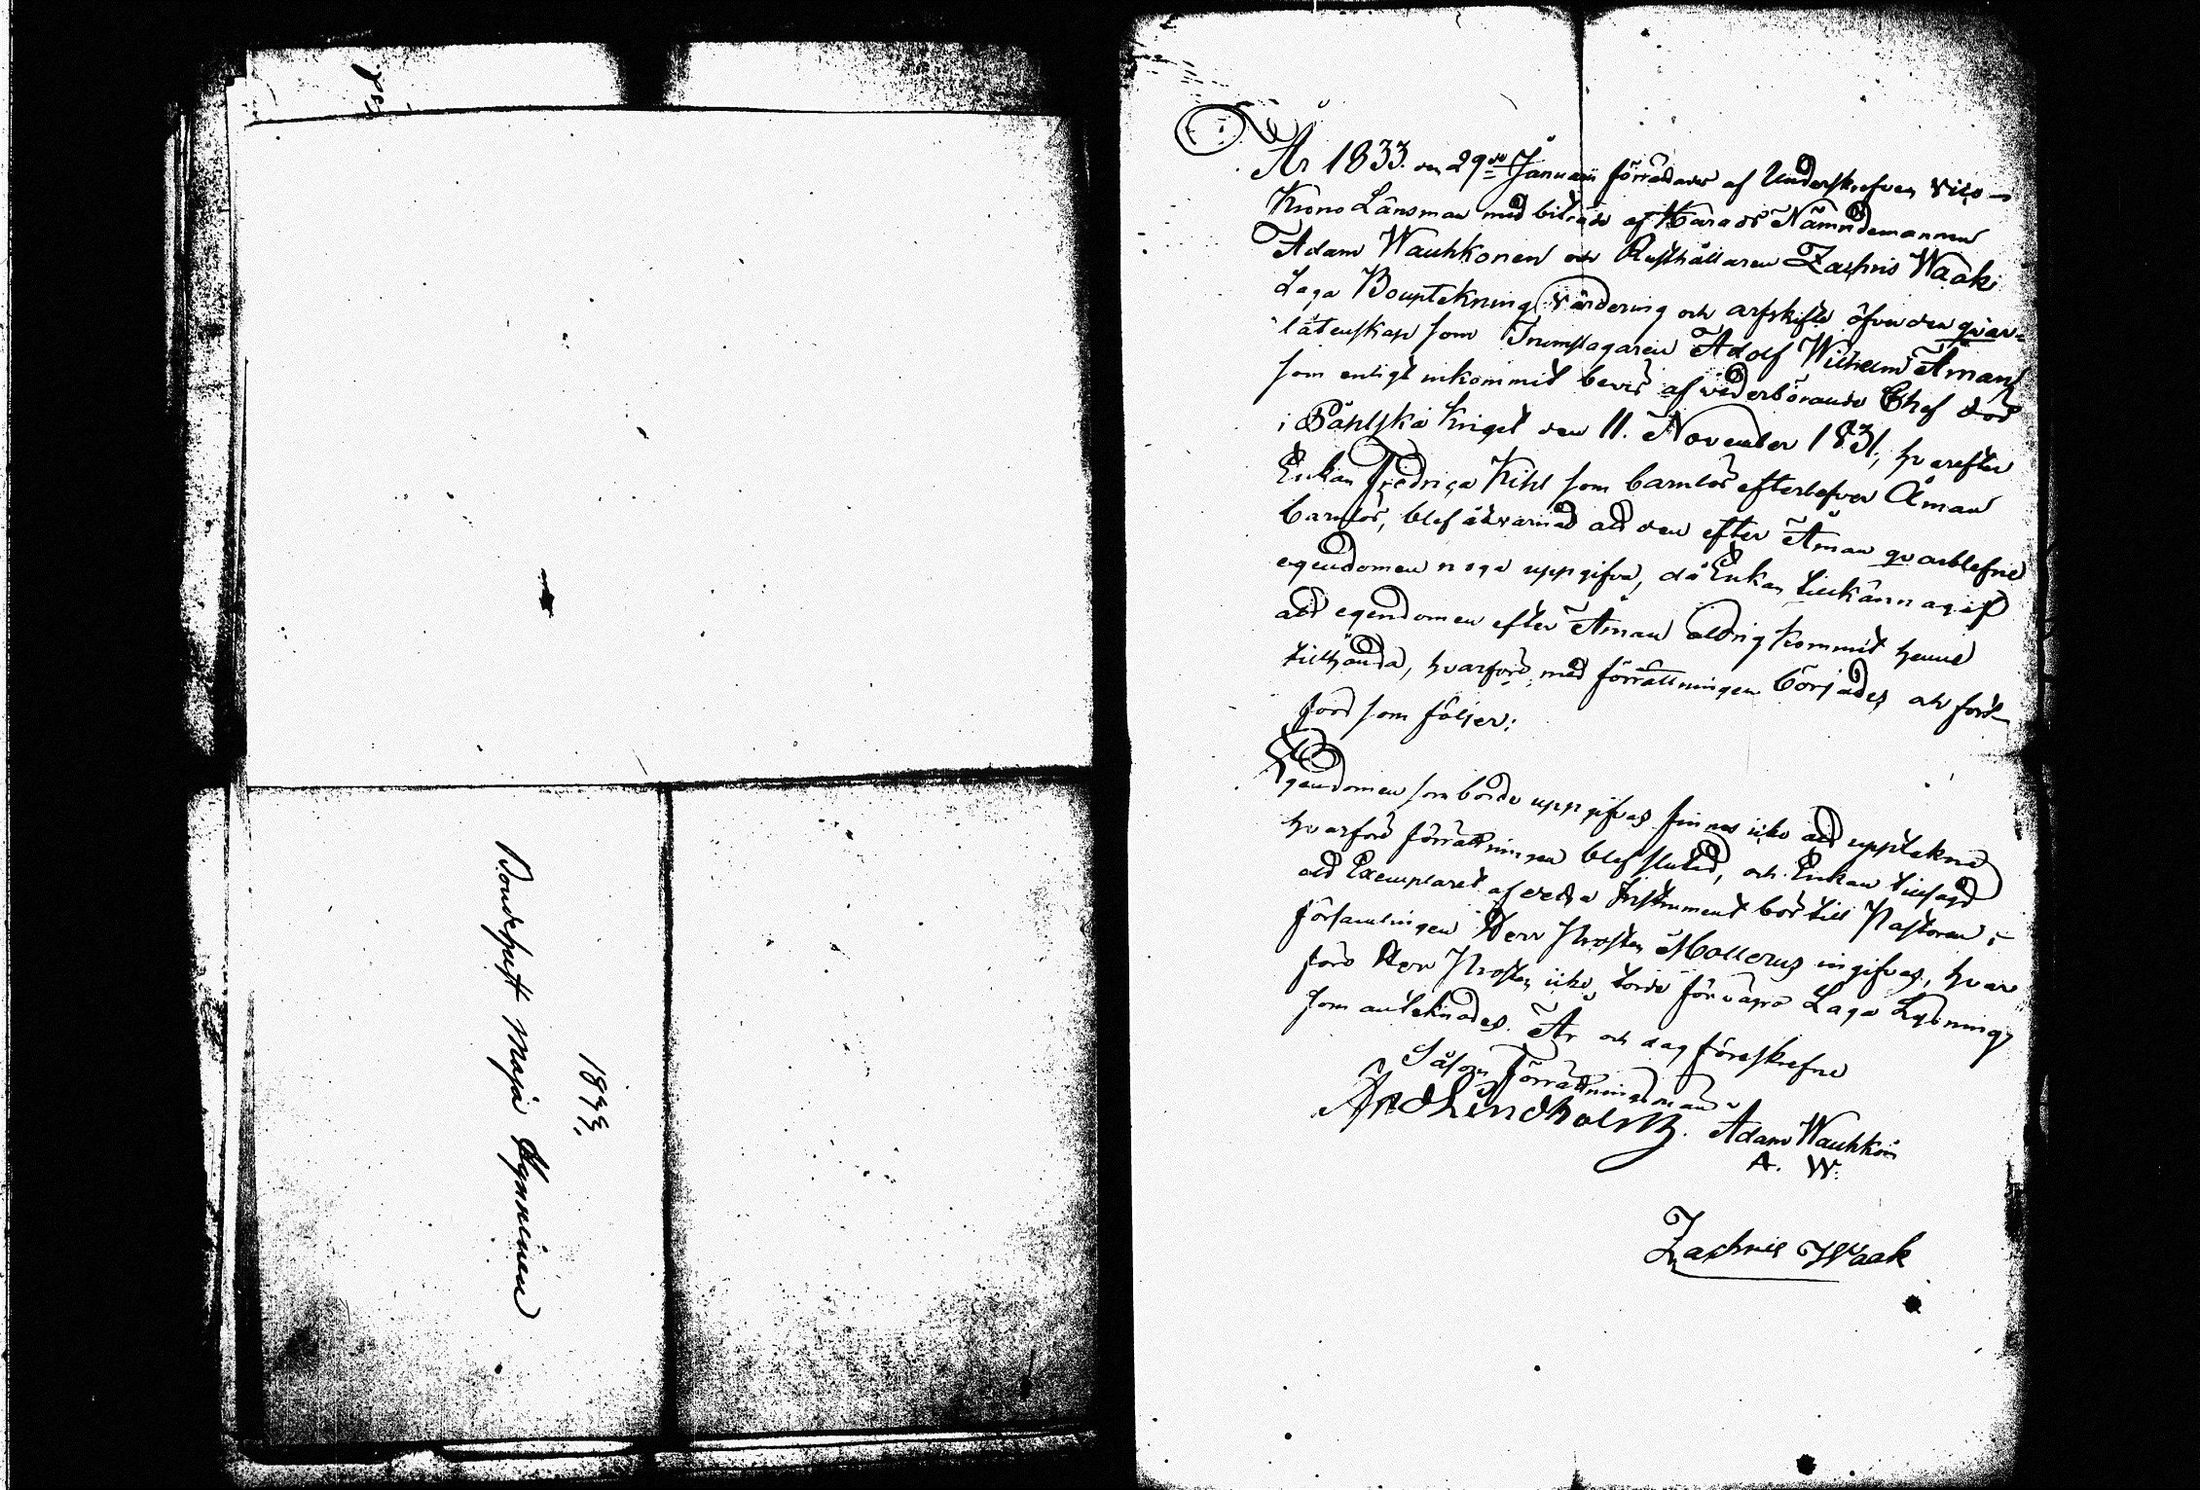 1833.
Bondehust. Maja Hynninen
År 1833. den 29de Januarii förrättades af Underskrefven Vice
Krono Länsman med biträde af Härads Nämndemannen
Adam Wauhkonen och Rusthållaren Zachris Waak
Laga Bouptekning värdering och arfskifte öfver den qvar-
låtenskap som Trumslagaren Adolf Wilhelm Åman
som enligt inkommit bevis af vederbörande Chef död
i Påhlska Kriget den 11. November 1831, hvarefter
Enkan Fredrica Kihl som barnlös efterlefver Åman
barnlös, blef åtvarnad att den efter Åman qvarblefne
egendomen noga uppgifva, då Enkan tillkännagif
att egendomen efter Åman aldrig kommit henne
tillhanda, hvarföre med förrättningen börjades och fort-
for som följer:
Egendomen som borde uppgifvas finnes icke att upptekna
hvarföre förrättningen blef slutad, och Enkan tillsagd
att Exemplaret af detta Instrument bör till Pastoren i
församlingen Herr Prosten Mollerus ingifvas, hvar
före Herr Prosten icke torde förvägra Laga Lysning
som anteknades. År och dag föreskrefne
Såsom Förrättningsman
And Lindholm. Adam Wauhkoin
A. W.
Zachris Waak